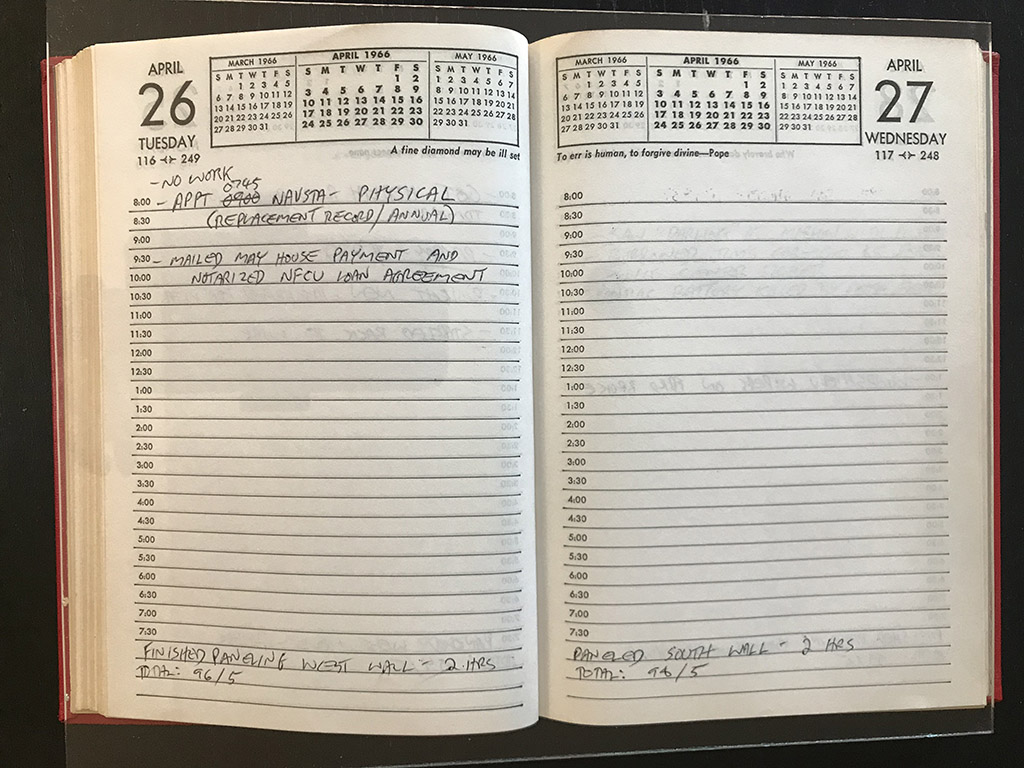 APRIL
26
TUESDAY
116 ⊰⊱ 249
MARCH 1966
S M T W T F S
1 2 3 4 5
6 7 8 9 10 11 12
13 14 15 16 17 18 19
20 21 22 23 24 25 26
27 28 29 30 31
APRIL 1966
S M T W T F S
1 2
3 4 5 6 7 8 9
10 11 12 13 14 15 16
17 18 19 20 21 22 23
24 25 26 27 28 29 30
MAY 1966
S M T W T F S
1 2 3 4 5 6 7
8 9 10 11 12 13 14
15 16 17 18 19 20 21
22 23 24 25 26 27 28
29 30 31
A fine diamond may be ill set
- NO WORK
0745
8:00 - APPT 0900 NAVSTA - PHYSICAL
8:30 (REPLACEMENT RECORD/ANNUAL)
9:00
9:30 - MAILED MAY HOUSE PAYMENT AND
10:00 NOTARIZED NFCU LOAN AGREEMENT
10:30
11:00
11:30
12:00
12:30
1:00
1:30
2:00
2:30
3:00
3:30
4:00
4:30
5:00
5:30
6:00
6:30
7:00
7:30
FINISHED PANELING WEST WALL - 2 HRS
TOTAL: 96/5
MARCH 1966
S M T W T F S
1 2 3 4 5
6 7 8 9 10 11 12
13 14 15 16 17 18 19
20 21 22 23 24 25 26
27 28 29 30 31
APRIL 1966
S M T W T F S
1 2
3 4 5 6 7 8 9
10 11 12 13 14 15 16
17 18 19 20 21 22 23
24 25 26 27 28 29 30
MAY 1966
S M T W T F S
1 2 3 4 5 6 7
8 9 10 11 12 13 14
15 16 17 18 19 20 21
22 23 24 25 26 27 28
29 30 31
APRIL
27
WEDNESDAY
117 ⊰⊱ 248
To err is human, to forgive divine—Pope
8:00
8:30
9:00
9:30
10:00
10:30
11:00
11:30
12:00
12:30
1:00
1:30
2:00
2:30
3:00
3:30
4:00
4:30
5:00
5:30
6:00
6:30
7:00
7:30
PANELED SOUTH WALL - 2 HRS
TOTAL: 98/5